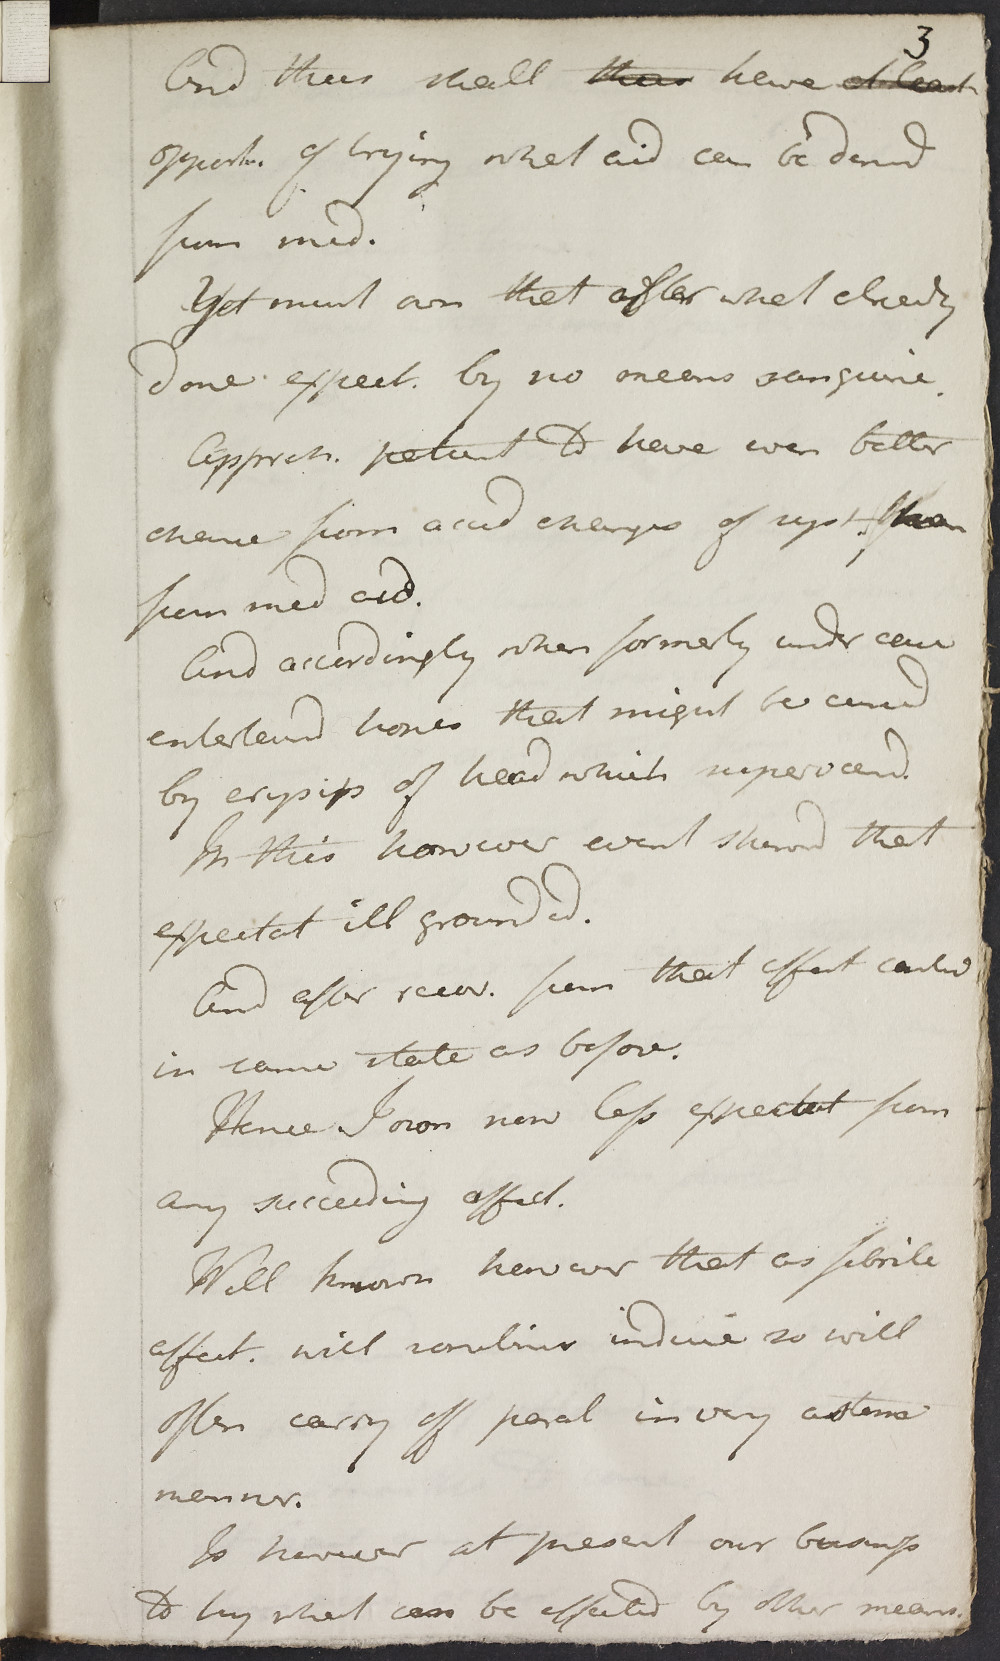 3
And thus shall thus have at least
opport. of trying what aid can be derivd
from med.
Yet must own that after what already
done expect. by no means sanguine.
Appreh. patient to have even better
chance from accid changes of syst. than
from med aid.
And accordingly when formerly under care
entertaind hopes that might be cured
by erysip of head which supervened.
In this however event shewd that
expectat ill grounded.
And after recov. from that affect contind
in same state as before.
Hence I own now less expectat from
any succeeding affect.
Well known however that as febrile
affect. will sometimes induce so will
often carry off paral in very
manner.
Is however at present our busness
to try what can be effected by other means.